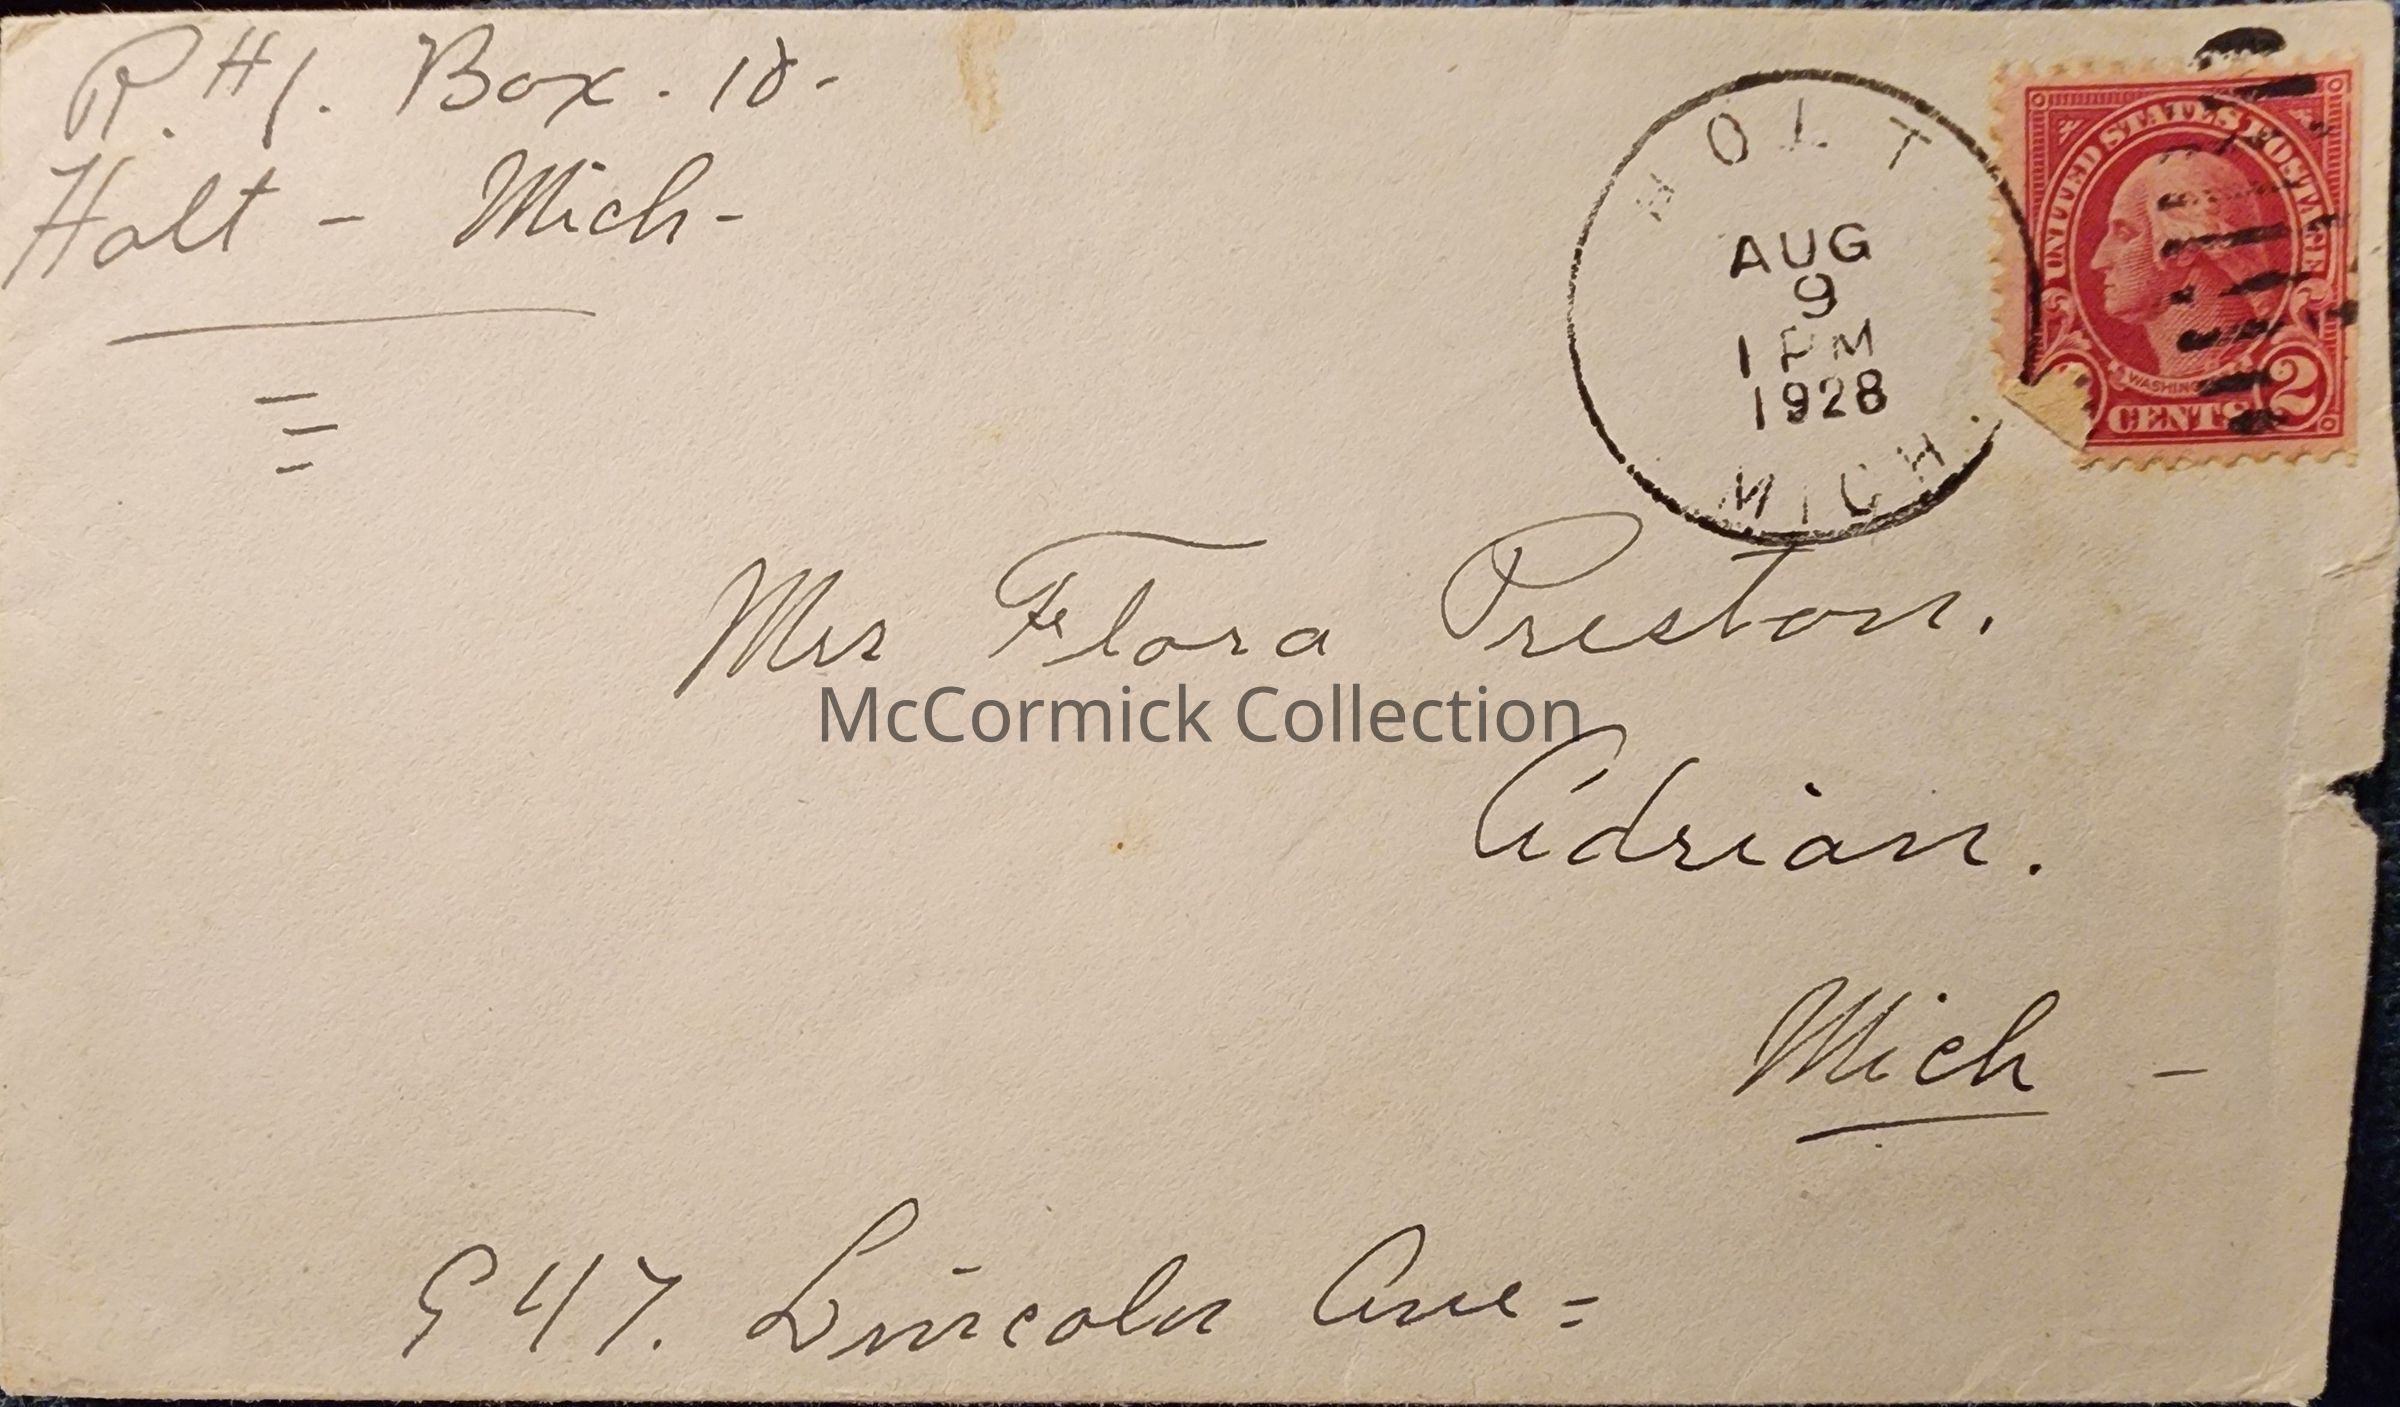 R.#1. Box. 18-
Holt - Mich-
HOLT
AUG
9
1 PM
1928
MICH.
UNITED STATES POSTAGE
WASHINGTON
CENTS 2
Mrs Flora Preston.
McCormick Collection
Adrian.
Mich -
947. Lincoln Ave=